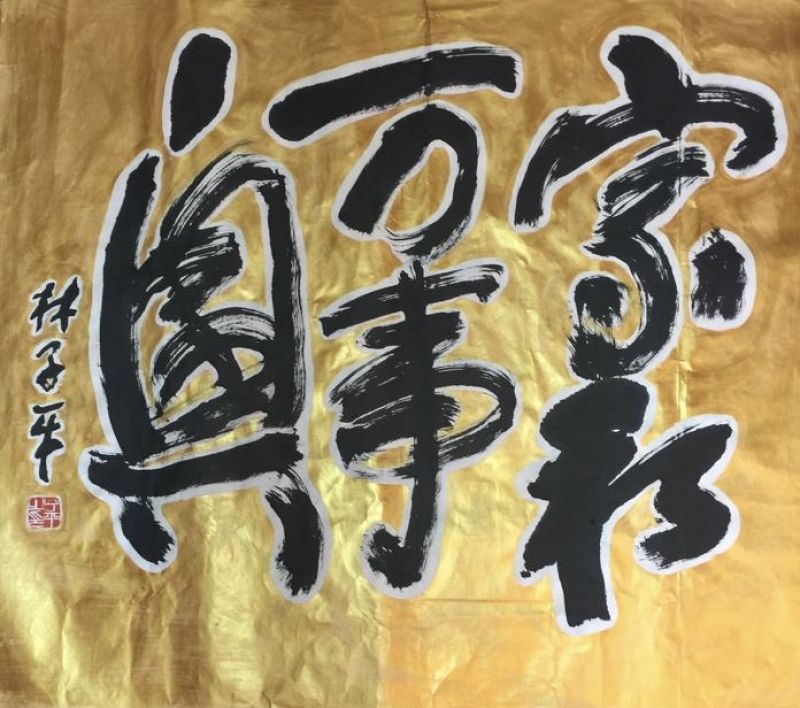 家和
万事
興
林子平